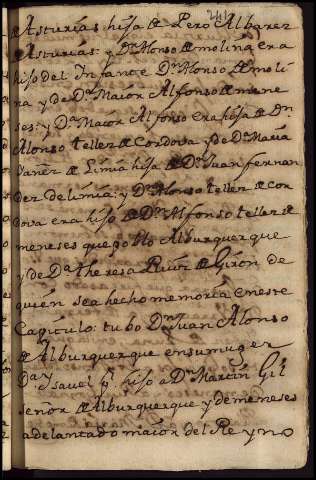 241
de Asturias hija de Pero Albarez
de Asturias: y Dn Alonso de molina era
hijo del Infante Dn Alonso de moli
na y de Da Maior Alfonso de mene
ses: y Da Maior Alfonso era hija de Dn
Alonso tellez de Cordova y de Da Maria
Yañez de Limia hija de Dn Juan fernan
dez de limia: y Dn Alonso tellez de Cor
dova era hijo de Dn Alfonso tellez de
meneses que poblo Alburquerque
y de Da theresa Ruiz de Giron de
quien se a hecho memoria en este
Capitulo: tubo Dn Juan Alonso
de Alburquerque en su muger
Da Ysavel pr hijo a Dn Martin Gil
señor de Alburquerque y de meneses
adelantado maior del Reyno